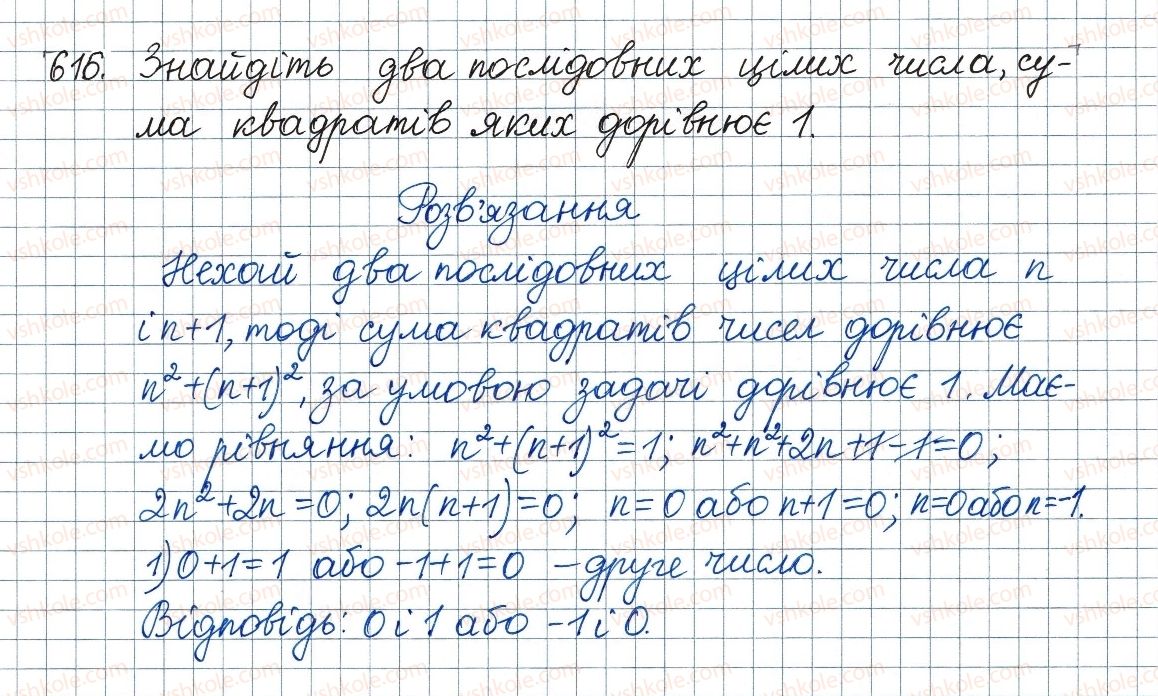 616. Знайдіть два послідовних цілих числа, су-
ма квадратів яких дорівнює 1.
Розв'язання
Нехай два послідовних цілих числа n
і n+1, тоді сума квадратів чисел дорівнює
n²+(n+1)², за умовою задачі дорівнює 1. Має-
мо рівняння: n²+(n+1)²=1; n²+n²+2n+1-1=0;
2n²+2n=0; 2n(n+1)=0; n=0 або n+1=0; n=0 або n=-1.
1) 0+1=1 або -1+1=0 – друге число.
Відповідь: 0 і 1 або -1 і 0.